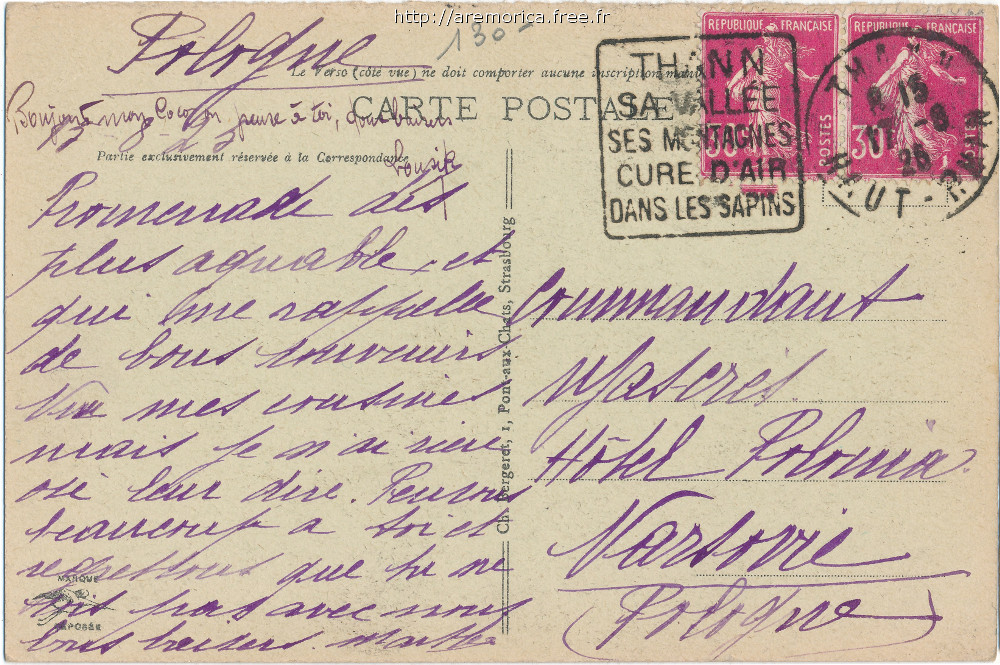 http://aremorica.free.fr
Pologne
130
Le Verso (côté vue) ne doit comporter aucune inscription manu
CARTE POSTALE
Partie exclusivement réservée à la Correspondance
pense à toi,
Promenade des
plus agréable et
qui me rappelle
de bons souvenirs
Vu mes cousines
mais je n'ai rien
osé leur dire. Pensons
beaucoup à toi et
regrettons que tu ne
sois pas avec nous
bons baisers.
MARQUE
DÉPOSÉE
Ch. Bergeret, 1, Pont-aux-Chats, Strasbourg
THANN
SA VALLÉE
SES MONTAGNES
CURE D'AIR
DANS LES SAPINS
REPUBLIQUE FRANÇAISE
POSTES
30
REPUBLIQUE FRANÇAISE
POSTES
30
THANN
15
17 -8
26
HAUT-RHIN
Commandant
Hôtel Polonia
Varsovie
Pologne